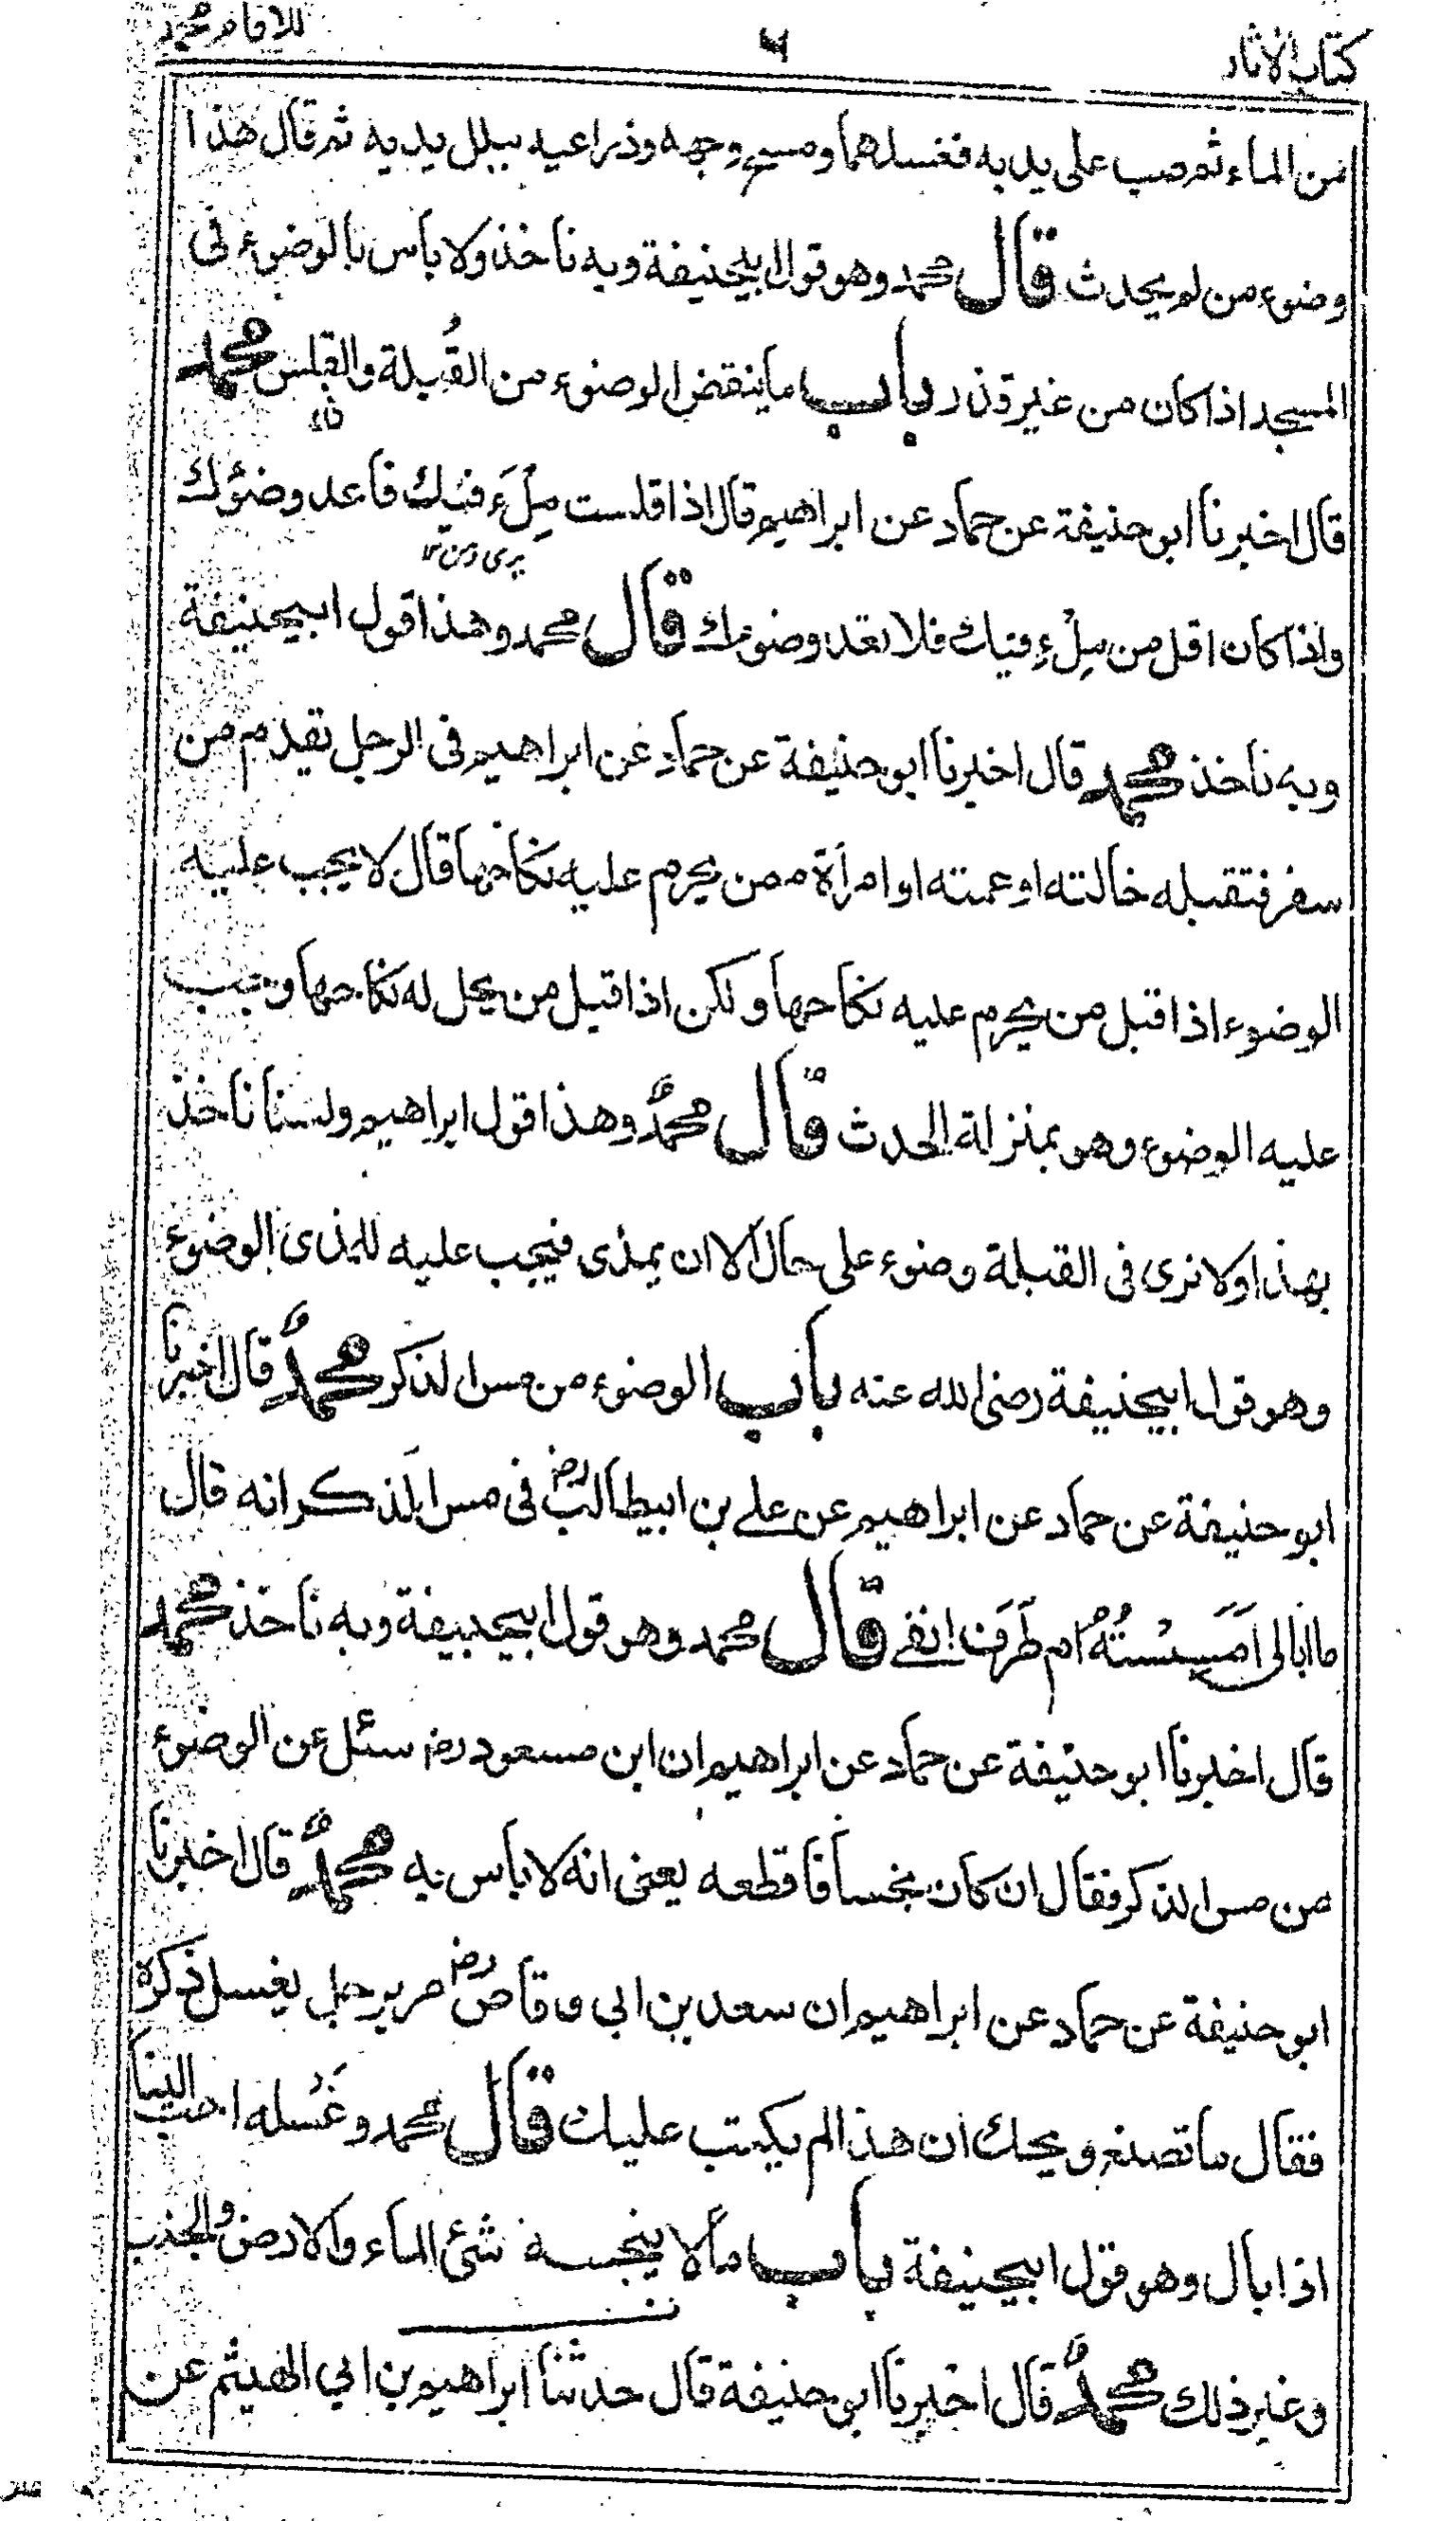 كتاب الاثار
٦
للامام محمد
من الماء ثم صب على يديه فغسلهما ومسح وجهه وذراعيه ببلل يديه ثم قال هذا
وضوء من لم يحدث قال محمد وهو قول ابيحنيفة وبه ناخذ ولا باس بالوضوء فى
المسجد اذا كان من غير قذر باب ما ينقض الوضوء من القُبلة والقلس محمد
قال اخبرنا ابو حنيفة عن حماد عن ابراهيم قال اذا قلست مِلْءَ فيك فاعد وضوئك
واذا كان اقل من مِلْءِ فيك فلا تعد وضوءك قال محمد وهذا قول ابيحنيفة
وبه ناخذ محمد قال اخبرنا ابو حنيفة عن حماد عن ابراهيم فى الرجل يقدم من
سفر فتقبله خالته او عمته او امرأة ممن يحرم عليه نكاحها قال لا يجب عليه
الوضوء اذا قبل من يحرم عليه نكاحها ولكن اذا قبل من يحل له نكاحها وجب
عليه الوضوء وهو بمنزلة الحدث قال محمد وهذا قول ابراهيم ولسنا ناخذ
بهذا ولا نرى فى القبلة وضوء على حال الا ان يمذى فيجب عليه للمذى الوضوء
وهو قول ابيحنيفة رضى الله عنه باب الوضوء من مس الذكر محمدٌ قال اخبرنا
ابو حنيفة عن حماد عن ابراهيم عن علے بن ابيطالب رض فى مس الذكر انه قال
ما ابالى اَمَسِسْتُهُ ام طَرَفَ انفے قال محمد وهو قول ابيحنيفة وبه ناخذ محمد
قال اخبرنا ابو حنيفة عن حماد عن ابراهيم ان ابن مسعود رض سئل عن الوضوء
من مس الذكر فقال ان كان نجسا فاقطعه يعنى انه لا باس به محمدٌ قال اخبرنا
ابو حنيفة عن حماد عن ابراهيم ان سعد بن ابى وقاص رض مر برجل يغسل ذكره
فقال ما تصنع ويحك ان هذا لم يكتب عليك قال محمد وغَسله احب الينا
اذا بال وهو قول ابيحنيفة باب ما لا ينجسه شئ الماء والارض والجنب
وغير ذلك محمدٌ قال اخبرنا ابو حنيفة قال حدثنا ابراهيم بن ابي الهيثم عن